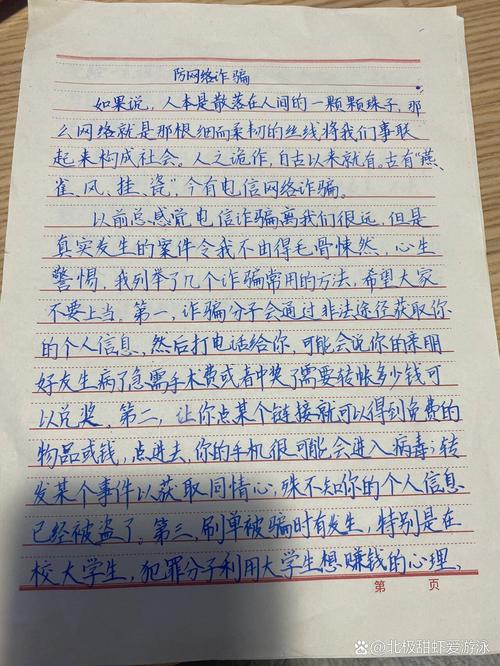 防网络诈骗
如果说,人本是散落在人间的一颗颗珠子,那
么网络就是那根细而柔韧的丝线将我们串联
起来构成社会。人之诡作,自古以来就有。古有“燕、
雀、风、挂、瓷”,今有电信网络诈骗。
以前总感觉电信诈骗离我们很远,但是
真实发生的案件令我不由得毛骨悚然,心生
警惕,我列举了几个诈骗常用的方法,希望大家
不要上当。第一,诈骗分子会通过非法途径获取你
的个人信息,然后打电话给你,可能会说你的亲朋
好友生病了急需手术费或者中奖了需要转帐多少钱可
以兑奖。第二,让你点某个链接就可以得到免费的
物品或钱,点进去,你的手机很可能会进入病毒;转
发某个事件以获取同情心,殊不知你的个人信息
已经被盗了。第三,刷单被骗时有发生,特别是在
校大学生,犯罪分子利用大学生想赚钱的心理,
第 页
@北极甜虾爱游泳